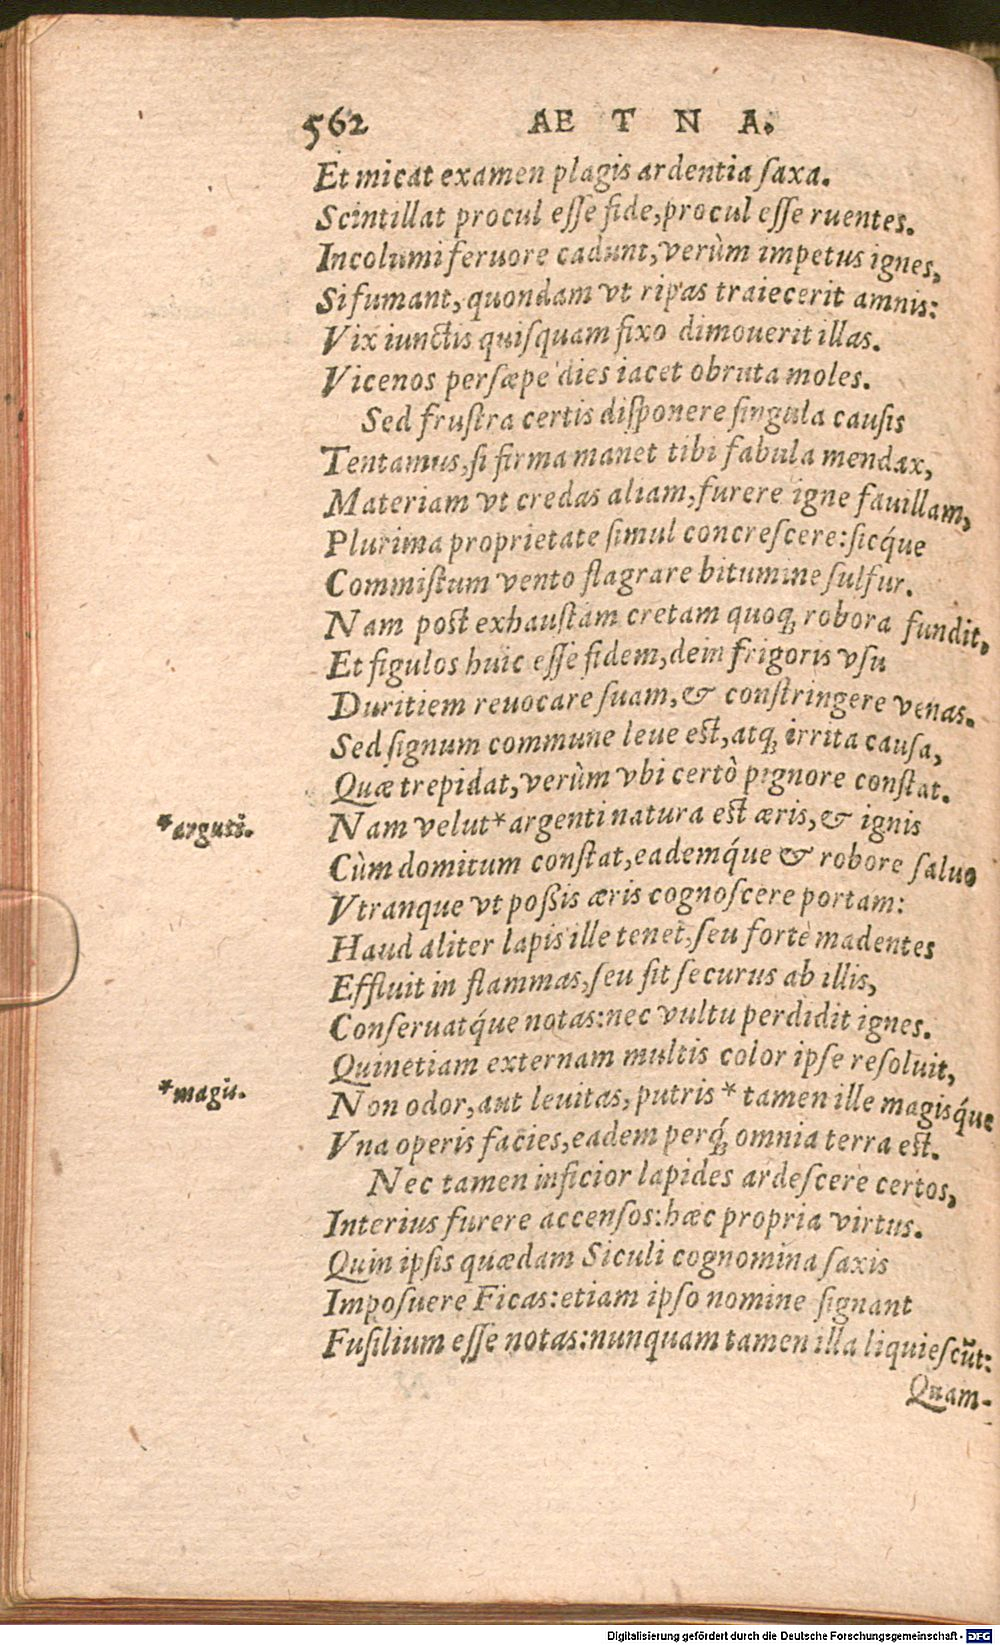 562 AETNA.
Et micat examen plagis ardentia ſaxa.
Scintillat procul eſſe fide, procul eſſe ruentes.
Incolumi feruore cadunt, verùm impetus ignes,
Si fumant, quondam vt ripas traiecerit amnis:
Vix iunctis quiſquam fixo dimouerit illas.
Vicenos perſæpe dies iacet obruta moles.
Sed fruſtra certis diſponere ſingula cauſis
Tentamus, ſi firma manet tibi fabula mendax,
Materiam vt credas aliam, furere igne fauillam,
Plurima proprietate ſimul concreſcere: ſicq́ue
Commiſtum vento flagrare bitumine ſulfur.
Nam poſt exhauſtam cretam quoq; robora fundit,
Et figulos huic eſſe fidem, dein frigoris vſu
Duritiem reuocare ſuam, & conſtringere venas.
Sed ſignum commune leue eſt, atq; irrita cauſa,
Quæ trepidat, verùm vbi certò pignore conſtat.
*arguti.
Nam velut* argenti natura eſt æris, & ignis
Cùm domitum conſtat, eademq́ue & robore ſaluo
Vtranque vt poßis æris cognoſcere portam:
Haud aliter lapis ille tenet, ſeu fortè madentes
Effluit in flammas, ſeu ſit ſecurus ab illis,
Conſeruatq́ue notas: nec vultu perdidit ignes.
Quinetiam externam multis color ipſe reſoluit,
*magis.
Non odor, aut leuitas, putris * tamen ille magisq́ue
Vna operis facies, eadem perq́; omnia terra eſt.
Nec tamen inficior lapides ardeſcere certos,
Interius furere accenſos: hæc propria virtus.
Quin ipſis quædam Siculi cognomina ſaxis
Impoſuere Ficas: etiam ipſo nomine ſignant
Fuſilium eſſe notas: nunquam tamen illa liquieſcūt:
Quam-
Digitalisierung gefördert durch die Deutsche Forschungsgemeinschaft - DFG